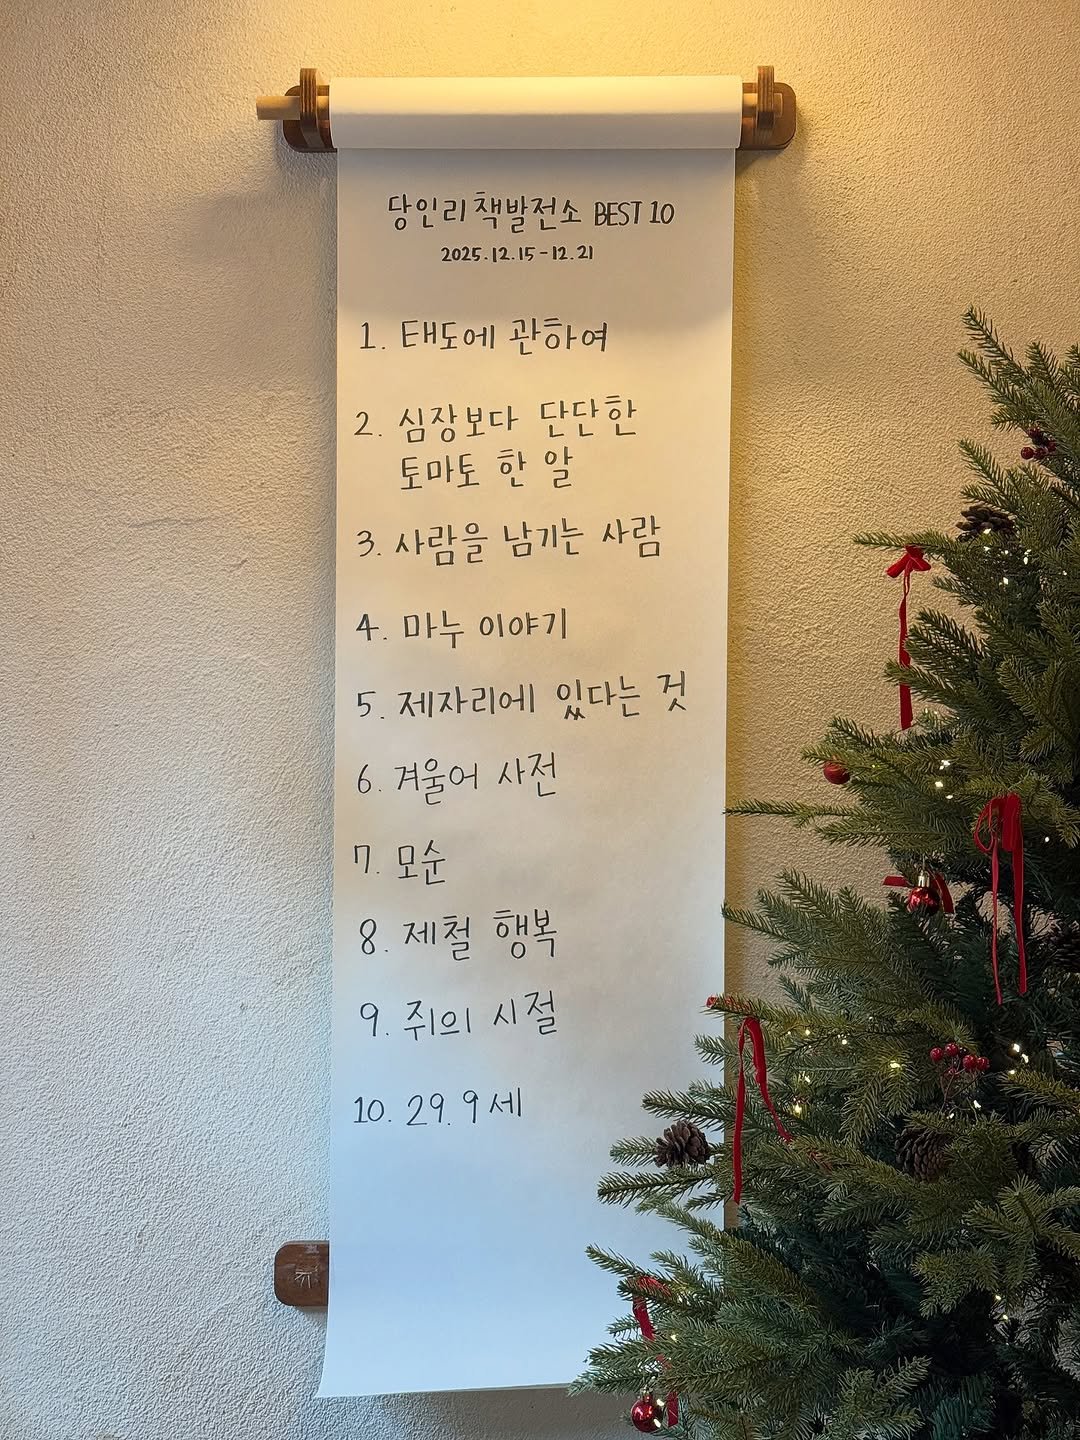 당인리 책발전소 BEST 10
2025.12.15-12.21
1. 태도에 관하여
2. 심장보다 단단한
토마토 한 알
3. 사람을 남기는 사람
4. 마누 이야기
5. 제자리에 있다는 것
6. 겨울어 사전
7. 모순
8. 제철 행복
9. 쥐의 시절
10. 29.9세